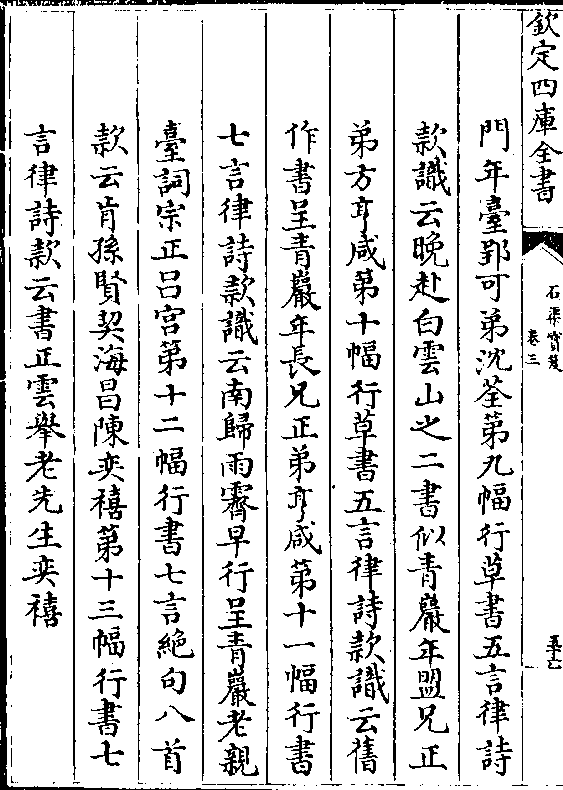 欽定四庫全書
石渠寶笈
卷三
門年臺郢可弟沈荃第九幅行草書五言律詩
款識云晚赴白雲山之二書似青巖年盟兄正
弟方亨咸第十幅行草書五言律詩款識云舊
作書呈青巖年長兄正弟亨咸第十一幅行書
七言律詩款識云南歸雨霽早行呈青巖老親
臺詞宗正吕宫第十二幅行書七言絶句八首
款云肯孫賢契海昌陳奕禧第十三幅行書七
言律詩款云書正雲舉老先生奕禧